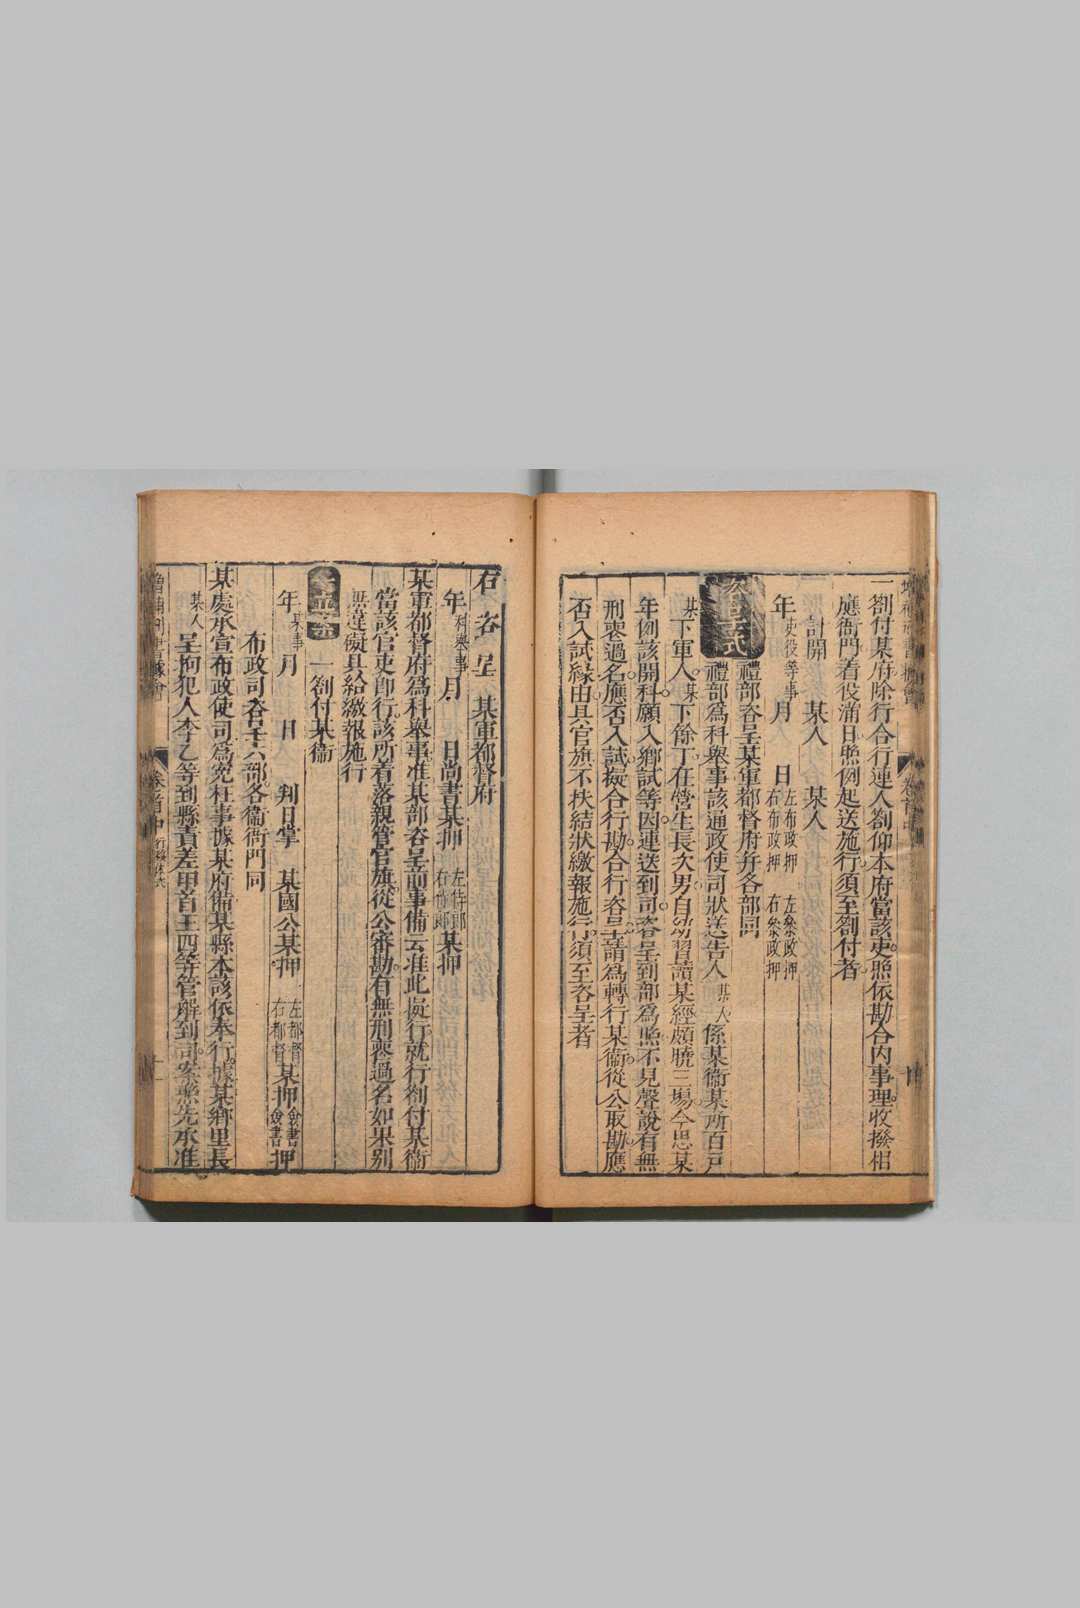 一劄付某府除行合行連人劄仰本府當該吏照依勘合內事理收撥相
應衙門着役滿日照例起送施行須至劄付者
計開 某人 某人
年吏役等事月 日左布政押 左叅政押 右布政押 右叅政押
咨呈式
禮部咨呈某軍都督府并各部同
禮部爲科舉事該通政使司狀送告人某人係某衞某所百戶
某下軍人某下餘丁在營生長次男自幼習讀某經頗曉三塲今思某
年例該開科願入鄉試等因連送到司咨呈到部爲照不見聲說有無
刑喪過名應否入試擬合行勘合行咨呈請爲轉行某衞從公取勘應
否入試緣由具官旗不扶結狀繳報施行須至咨呈者
右咨呈 某軍都督府
年科舉事月 日尚書某押 左侍郎右侍郎某押
某軍都督府爲科舉事准某部咨呈前事備云准此擬行就行劄付某衞
當該官吏即行該所着落親管官旗從公審勘有無刑喪過名如果別
無違礙具給繳報施行
一劄付某衞
年某事月 日 判日掌 某國公某押 左都督右都督某押僉書僉書押
布政司咨呈六部各衞衙門同
某處承宣布政使司爲寃枉事據某府備某縣本該依奉行據某鄉里長
某人呈拘犯人李乙等到縣責差甲首王四等管解到司案照先承准
卷首中 行移體式